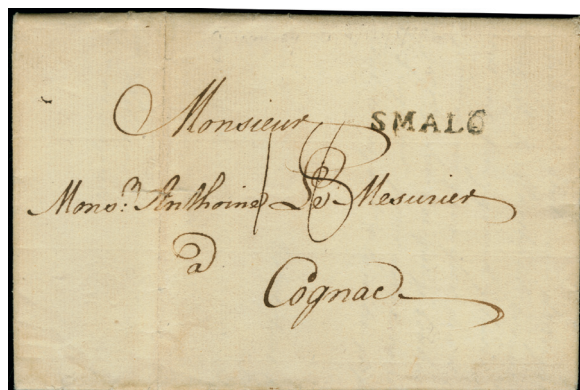 Monsieur
SMALO
Monsr. Anthoine Le Mesurier
a
Cognac